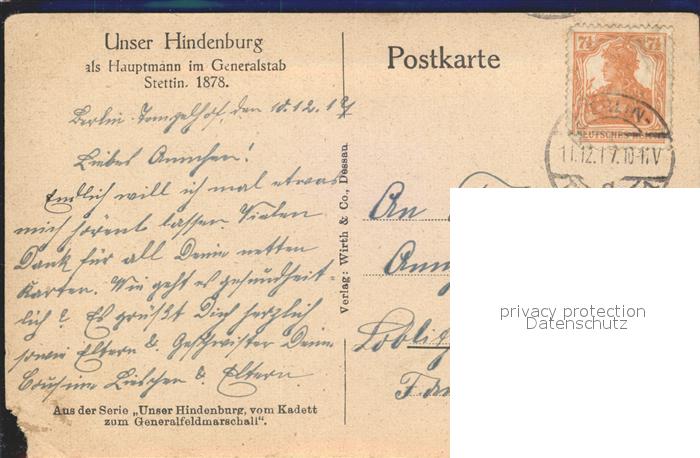 Unser Hindenburg
als Hauptmann im Generalstab
Stettin. 1878.
Postkarte
7½ 7½
DEUTSCHES REICH
BERLIN-
11.12.17.10-11V
Berlin-Tempelhof, den 10.12.17
Liebes Annchen!
Endlich will ich mal etwas
mich hören lassen. Vielen
Dank für all Deine netten
Karten. Wie geht es gesundheit-
lich? Es grüßt Dich herzlich
sowie Eltern & Geschwister Deine
Cousine Lieschen & Eltern.
Verlag: Wirth & Co., Dessau
An
Aus der Serie „Unser Hindenburg, vom Kadett
zum Generalfeldmarschall“.
privacy protection
Datenschutz